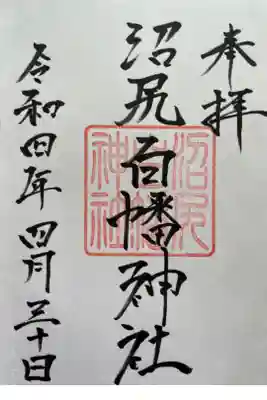 奉拝
沼尻白幡神社
沼尻白幡神社
令和四年四月三十日